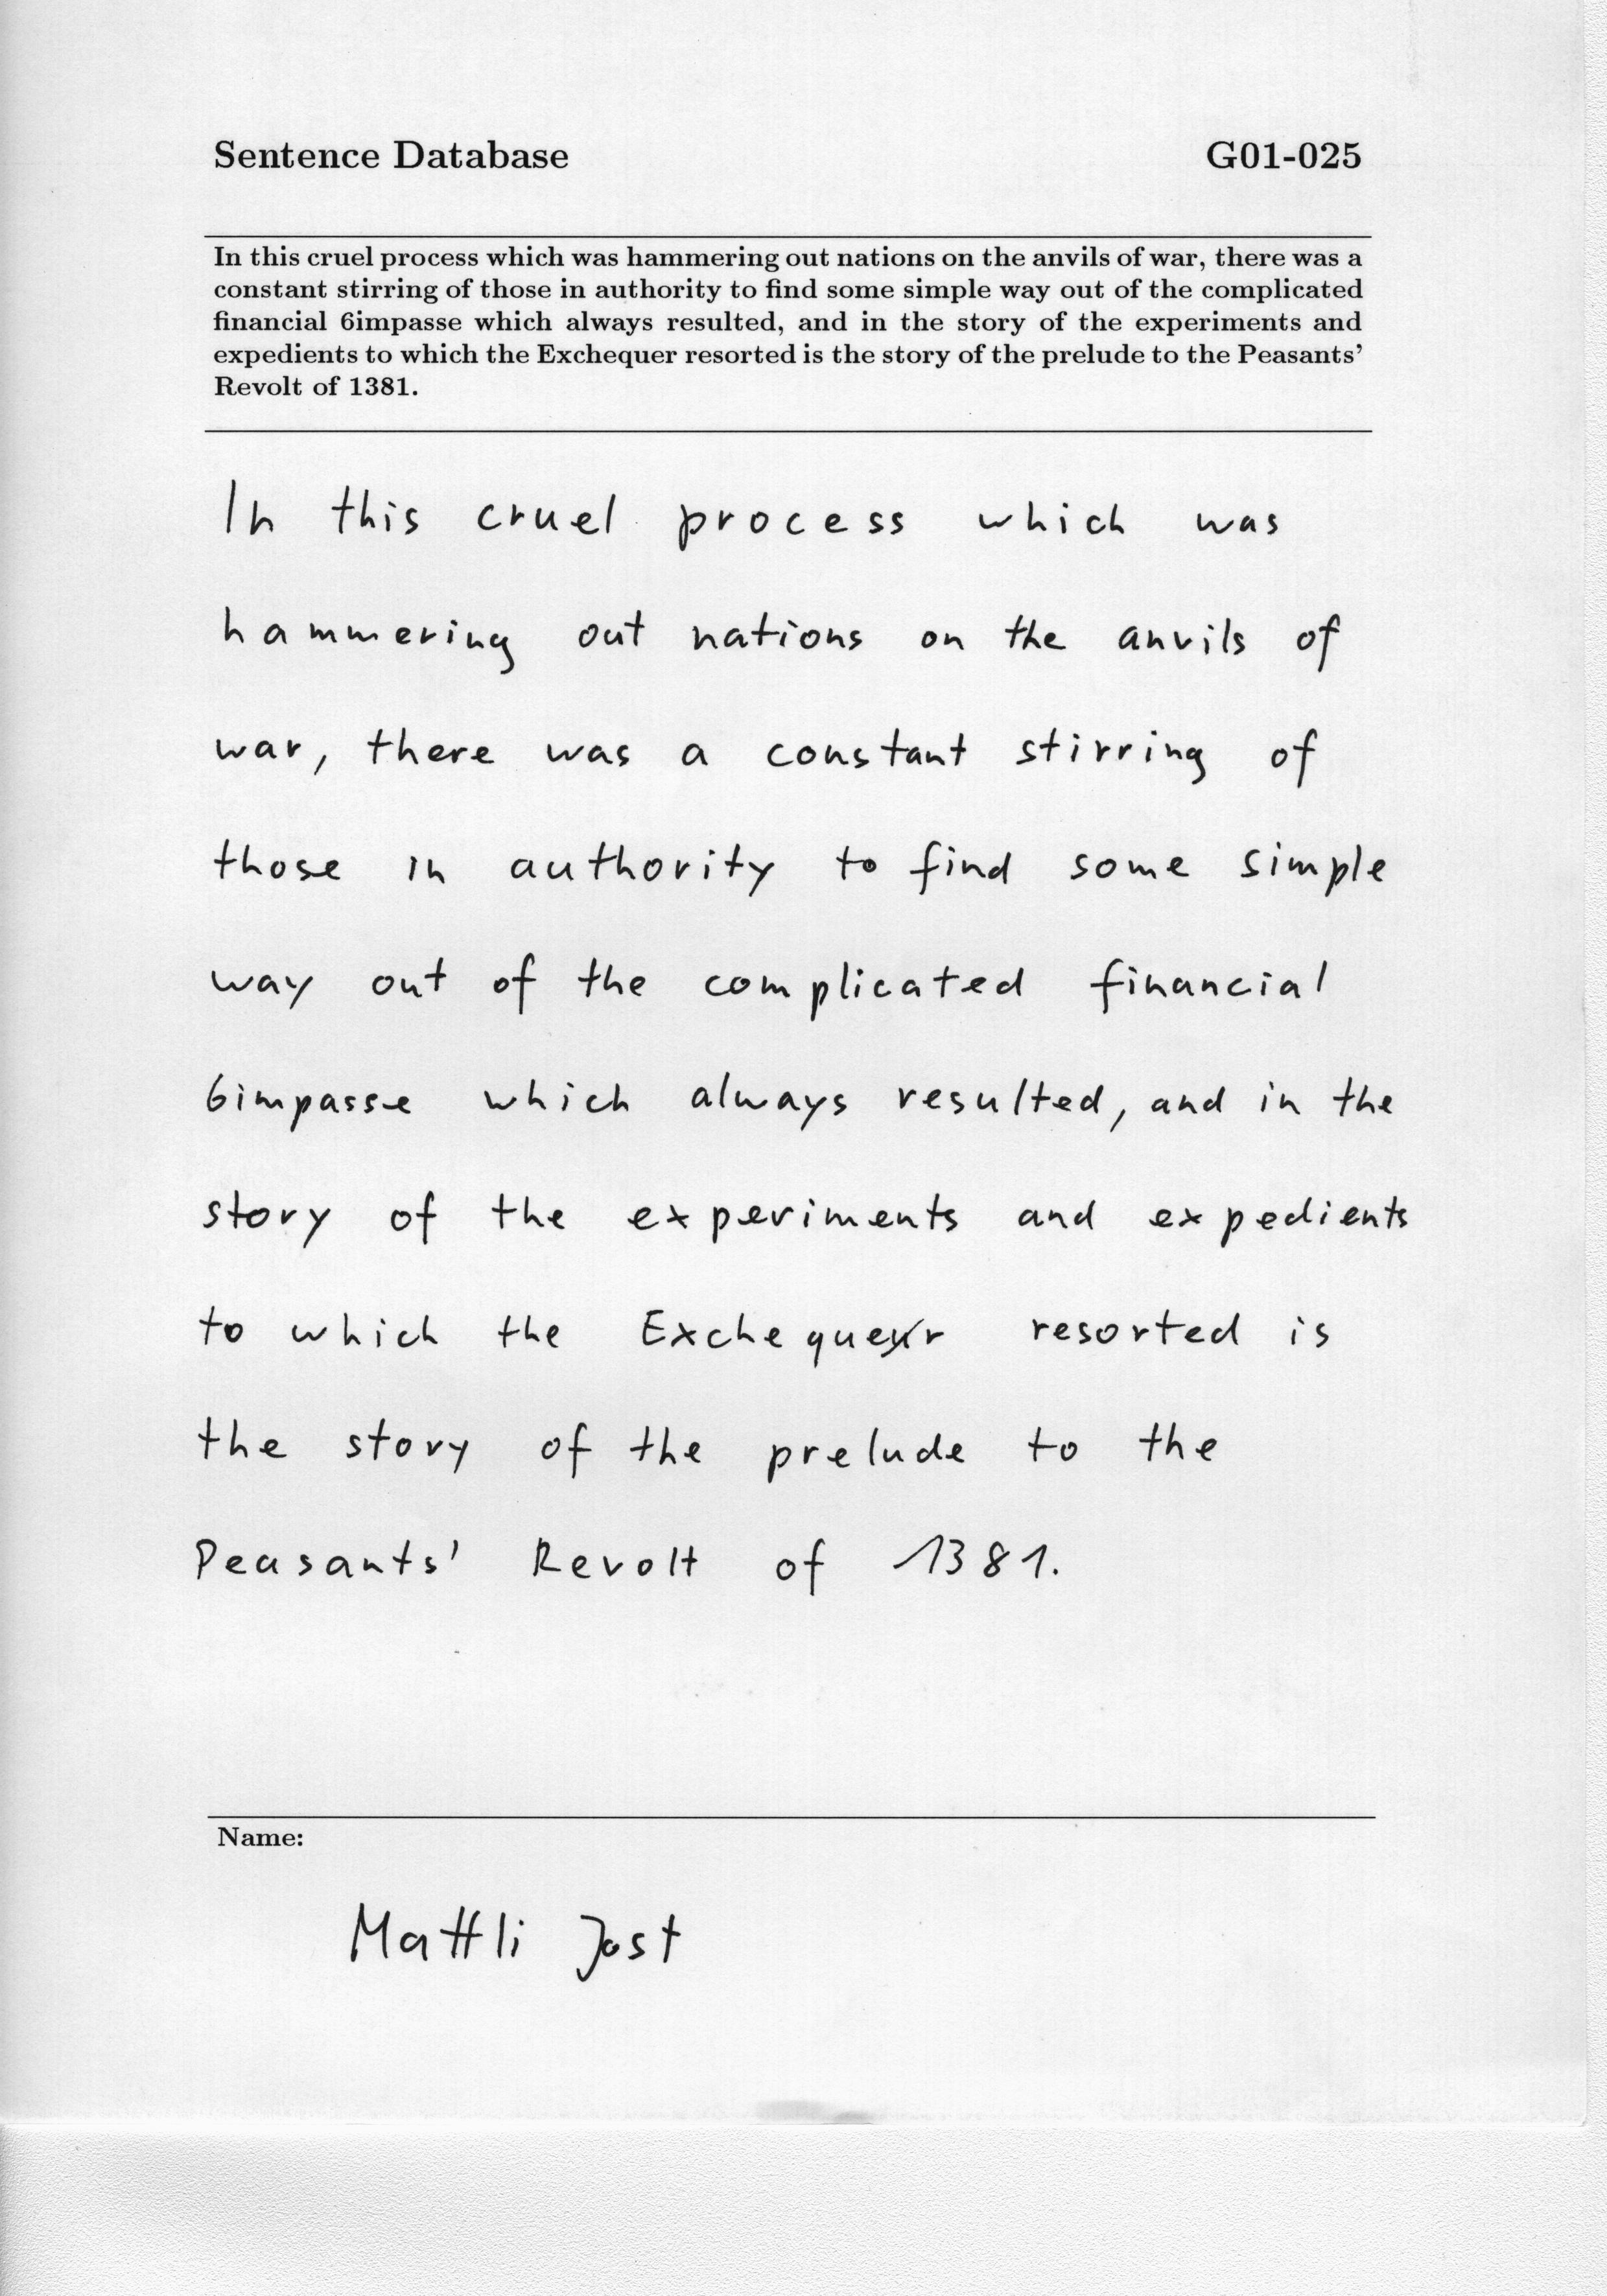 Sentence Database G01-025
In this cruel process which was hammering out nations on the anvils of war, there was a
constant stirring of those in authority to find some simple way out of the complicated
financial 6impasse which always resulted, and in the story of the experiments and
expedients to which the Exchequer resorted is the story of the prelude to the Peasants'
Revolt of 1381.
In this cruel process which was
hammering out nations on the anvils of
war, there was a constant stirring of
those in authority to find some simple
way out of the complicated financial
6impasse which always resulted, and in the
story of the experiments and expedients
to which the Exchequer resorted is
the story of the prelude to the
Peasants' Revolt of 1381.
Name:
Mattli Jost